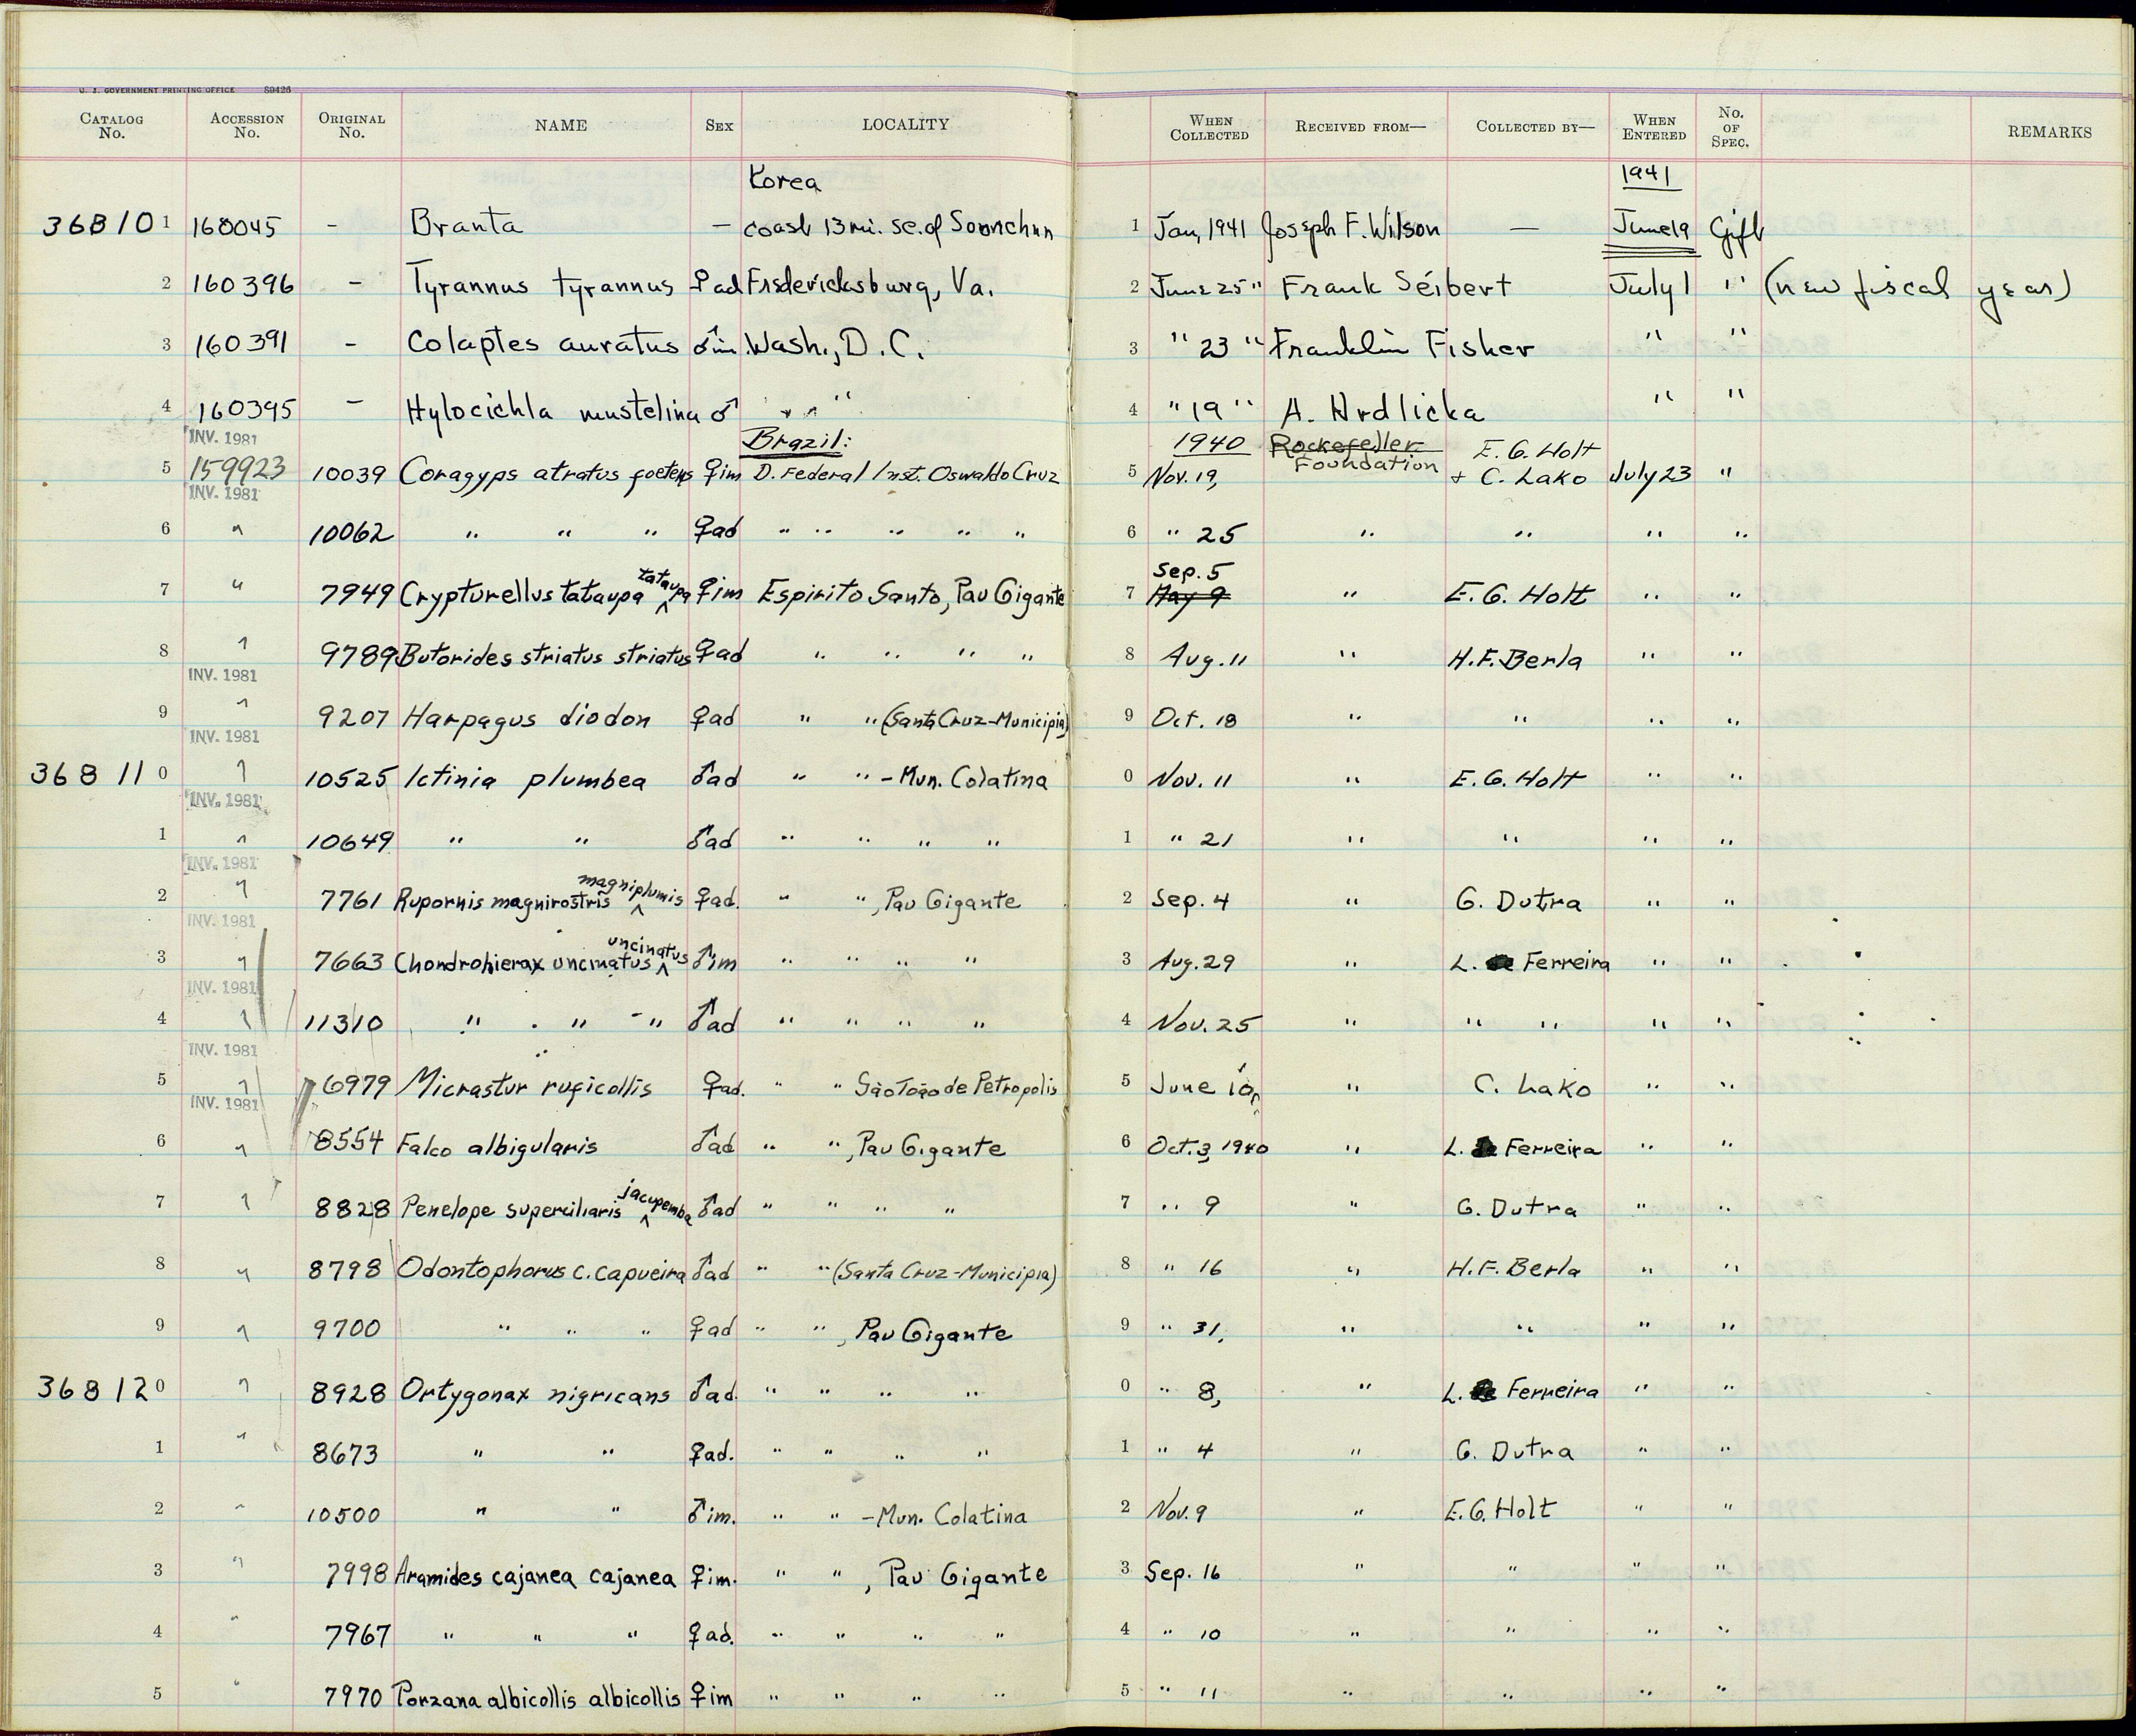 U. S. GOVERNMENT PRINTING OFFICE 89426
CATALOG No. ACCESSION No. ORIGINAL No. NAME SEX LOCALITY WHEN COLLECTED RECEIVED FROM— COLLECTED BY— WHEN ENTERED No. OF SPEC. REMARKS
Korea 1941
368101 160045 - Branta — coast 13 mi. se. of Soonchun 1 Jan, 1941 Joseph F. Wilson — June 19 Gift
2 160396 - Tyrannus tyrannus ♀ad Fredericksburg, Va. 2 June 25 " Frank Seibert July 1 " (new fiscal year)
3 160391 - Colaptes auratus ♂im Wash., D.C. 3 " 23 " Franklin Fisher " "
4 160395 - Hylocichla mustelina ♂ " " " 4 " 19 " A. Hrdlicka " "
INV. 1981 Brazil: 1940 Rockefeller Foundation E. G. Holt
5 159923 10039 Coragyps atratus foetens ♀im D. Federal Inst. Oswaldo Cruz 5 Nov. 19, + C. Lako July 23 "
INV. 1981
6 " 10062 " " " ♀ad " " " " " 6 " 25 " " " "
Sep. 5
7 " 7949 Crypturellus tataupa ^ tataupa ♀im Espirito Santo, Pau Gigante 7 May 9 " E. G. Holt " "
8 " 9789 Butorides striatus striatus ♀ad " " " " 8 Aug. 11 " H. F. Berla " "
INV. 1981
9 " 9207 Harpagus diodon ♀ad " " (Santa Cruz-Municipia) 9 Oct. 18 " " " "
INV. 1981
368110 " 10525 Ictinia plumbea ♂ad " " - Mun. Colatina 0 Nov. 11 " E. G. Holt " "
INV. 1981
1 " 10649 " " ♂ad " " " " 1 " 21 " " " "
INV. 1981
2 " 7761 Rupornis magnirostris ^ magniplumis ♀ad. " ", Pau Gigante 2 Sep. 4 " G. Dutra " "
INV. 1981
3 " 7663 Chondrohierax uncinatus ^ uncinatus ♂im " " " " 3 Aug. 29 " L. Ferreira " "
INV. 1981
4 " 11310 " " " ♂ad " " " " 4 Nov. 25 " " " " "
INV. 1981
5 " 6979 Micrastur ruficollis ♀ad. " " São João de Petropolis 5 June 10, " C. Lako " "
INV. 1981
6 " 8554 Falco albigularis ♂ad " ", Pau Gigante 6 Oct. 3, 1940 " L. Ferreira " "
7 " 8828 Penelope superciliaris ^ jacupemba ♂ad " " " " 7 " 9 " G. Dutra " "
8 " 8798 Odontophorus c. capueira ♂ad " " (Santa Cruz-Municipia) 8 " 16 " H. F. Berla " "
9 " 9700 " " " ♀ad " ", Pau Gigante 9 " 31, " " " "
368120 " 8928 Ortygonax nigricans ♂ad. " " " " 0 " 8, " L. Ferreira " "
1 " 8673 " " ♀ad. " " " " 1 " 4 " G. Dutra " "
2 " 10500 " " ♂im. " " - Mun. Colatina 2 Nov. 9 " E. G. Holt " "
3 " 7998 Aramides cajanea cajanea ♀im. " ", Pau Gigante 3 Sep. 16 " " " "
4 " 7967 " " " ♀ad. " " " " 4 " 10 " " " "
5 " 7970 Porzana albicollis albicollis ♀im " " " " 5 " 11 " " " "